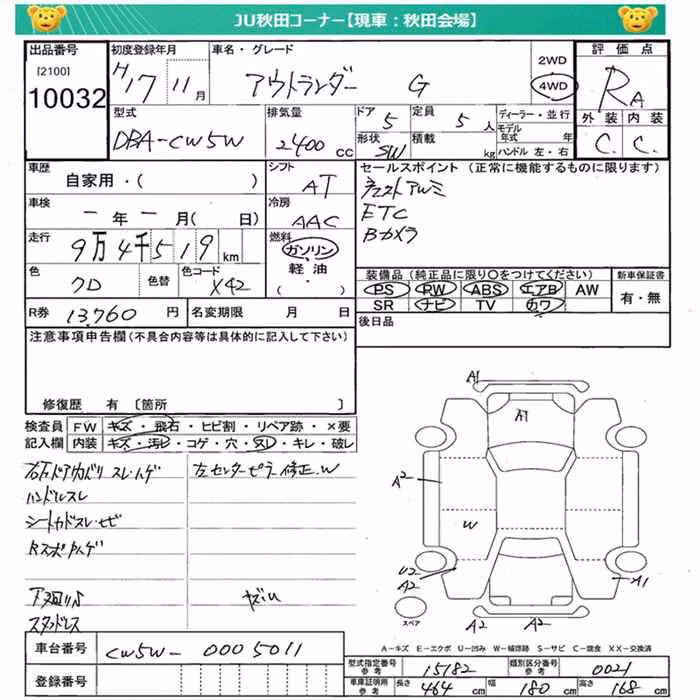 JU秋田コーナー【現車：秋田会場】
出品番号
[2100]
10032
初度登録年月
H17 11月
車名・グレード
アウトランダー G
2WD
4WD
評価点
RA
外装 内装
C. C.
型式
DBA-CW5W
排気量
2400 cc
ドア 5
定員 5人
形状 SW
積載 kg
ディーラー・並行
モデル年式 年
ハンドル 左・右
車歴
自家用・( )
シフト
AT
車検
一年一月( 日)
冷房
AAC
走行
9万4千519km
燃料
ガソリン
軽油
( ・ )
色
クロ
色替
色コード
X42
R券 13,760円
名変期限 月 日
セールスポイント (正常に機能するものに限ります)
アルミ
ETC
Bカメラ
装備品 (純正品に限り○をつけてください)
PS PW ABS エアB AW
SR ナビ TV カワ
新車保証書
有・無
後日品
注意事項申告欄(不具合内容等は具体的に記入して下さい)
修復歴 有 〔箇所 〕
検査員記入欄
FW キズ・飛石・ヒビ割・リペア跡・×要
内装 キズ・汚レ・コゲ・穴・スレ・キレ・破レ
左センターピラー修正W
ハンドルスレ
A1
A1
A2
W
U2
A2
A1
A2 A2
スペア
A－キズ E－エクボ U－凹み W－補修跡 S－サビ C－腐食 XX－交換済
車台番号
CW5W- 0005011
登録番号
型式指定番号 参考
15182
類別区分番号 参考
0021
車庫証明用 参考
長さ 464cm
幅 180cm
高さ 168cm